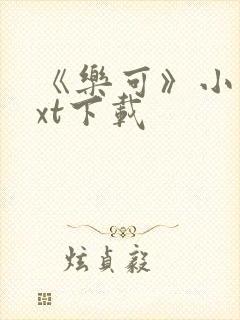 《樂可》小
xt下載
炫貞毅